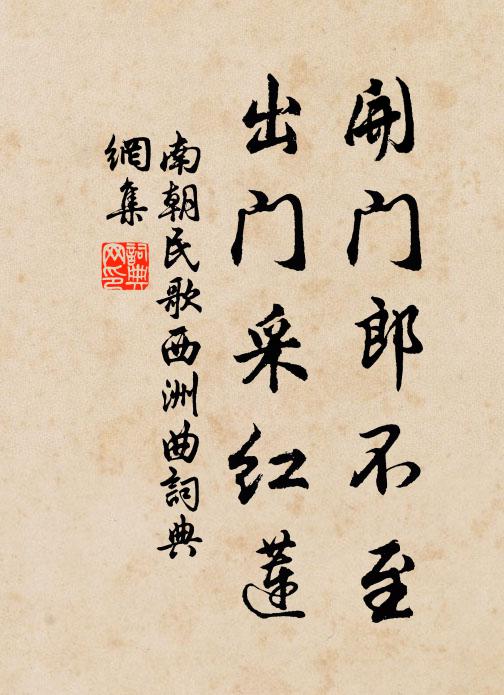 開门郎不至
出门采红蓮
南朝民歌西洲曲詞典
網集
詞典
网印